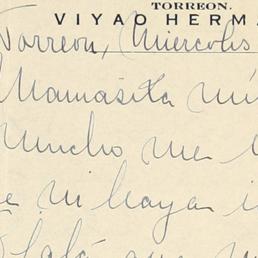 TORREON.
VIYAO HERM
Torreon, Miercoles
Mamasita mí
Mucho me
ni haya
que